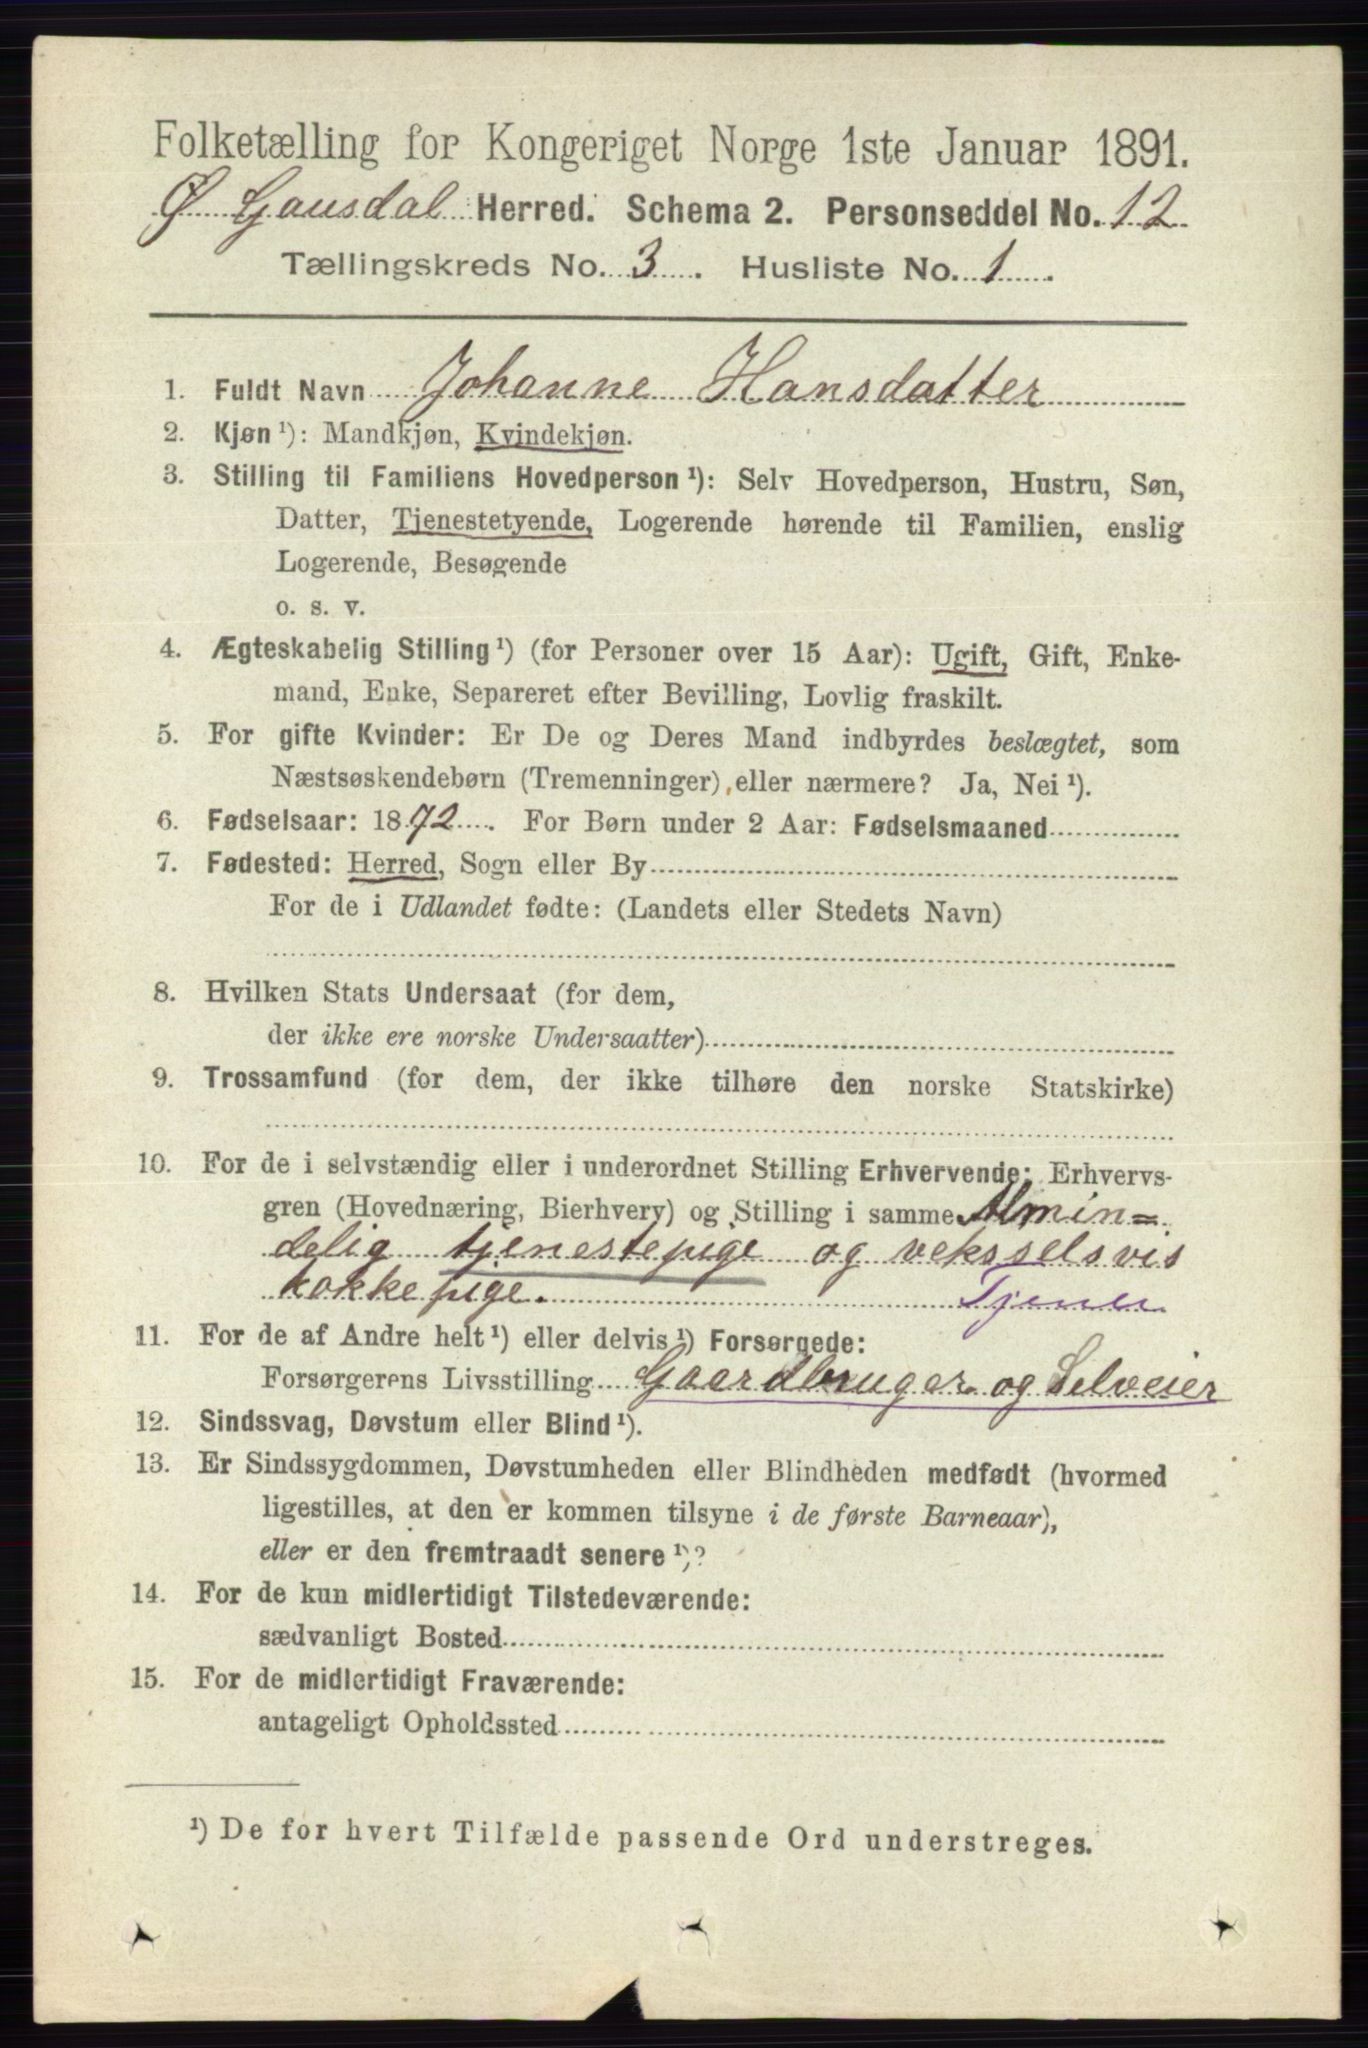 Folketælling for Kongeriget Norge 1ste Januar 1891.
Ø. Gausdal Herred. Schema 2. Personseddel No. 12
Tællingskreds No. 3. Husliste No. 1.
1. Fuldt Navn Johanne Hansdatter
2. Kjøn ¹): Mandkjøn, Kvindekjøn.
3. Stilling til Familiens Hovedperson ¹): Selv Hovedperson, Hustru, Søn,
Datter, Tjenestetyende, Logerende hørende til Familien, enslig
Logerende, Besøgende
o. s. v.
4. Ægteskabelig Stilling ¹) (for Personer over 15 Aar): Ugift, Gift, Enke-
mand, Enke, Separeret efter Bevilling, Lovlig fraskilt.
5. For gifte Kvinder: Er De og Deres Mand indbyrdes beslægtet, som
Næstsøskendebørn (Tremenninger), eller nærmere? Ja, Nei ¹).
6. Fødselsaar: 1872. For Børn under 2 Aar: Fødselsmaaned
7. Fødested: Herred, Sogn eller By
For de i Udlandet fødte: (Landets eller Stedets Navn)
8. Hvilken Stats Undersaat (for dem,
der ikke ere norske Undersaatter)
9. Trossamfund (for dem, der ikke tilhøre den norske Statskirke)
10. For de i selvstændig eller i underordnet Stilling Erhvervende: Erhvervs-
gren (Hovednæring, Bierhverv) og Stilling i samme Almin=
delig tjenestepige og veksselsvis
kokkepige. Tjener
11. For de af Andre helt ¹) eller delvis ¹) Forsørgede:
Forsørgerens Livsstilling Gaardbruger og Selveier
12. Sindssvag, Døvstum eller Blind ¹).
13. Er Sindssygdommen, Døvstumheden eller Blindheden medfødt (hvormed
ligestilles, at den er kommen tilsyne i de første Barneaar),
eller er den fremtraadt senere ¹)?
14. For de kun midlertidigt Tilstedeværende:
sædvanligt Bosted
15. For de midlertidigt Fraværende:
antageligt Opholdssted
¹) De for hvert Tilfælde passende Ord understreges.